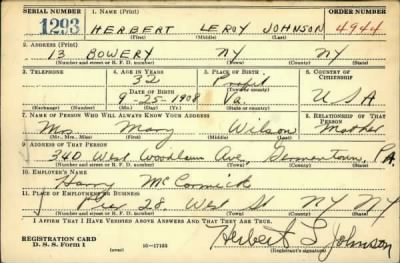 SERIAL NUMBER 1. NAME (Print) ORDER NUMBER
1293 HERBERT LEROY JOHNSON 4944
(First) (Middle) (Last)
2. ADDRESS (Print)
13 BOWERY NY NY
(Number and street or R. F. D. number) (Town) (County) (State)
3. TELEPHONE 4. AGE IN YEARS 5. PLACE OF BIRTH 6. COUNTRY OF CITIZENSHIP
32
DATE OF BIRTH (Town or county)
9-25-1908 Va. USA
(Exchange) (Number) (Mo.) (Day) (Yr.) (State or country)
7. NAME OF PERSON WHO WILL ALWAYS KNOW YOUR ADDRESS 8. RELATIONSHIP OF THAT PERSON
Mrs Mary Wilson Mother
(Mr., Mrs., Miss) (First) (Middle) (Last)
9. ADDRESS OF THAT PERSON
340 West Woodlawn Ave, Germantown, PA
(Number and street or R. F. D. number) (Town) (County) (State)
10. EMPLOYER'S NAME
Harry McCormick
11. PLACE OF EMPLOYMENT OR BUSINESS
Pier 28 West St NY NY
(Number and street or R. F. D. number) (Town) (County) (State)
I AFFIRM THAT I HAVE VERIFIED ABOVE ANSWERS AND THAT THEY ARE TRUE.
REGISTRATION CARD
D. S. S. Form 1 (over) 16-17105 Herbert L Johnson
(Registrant's signature)